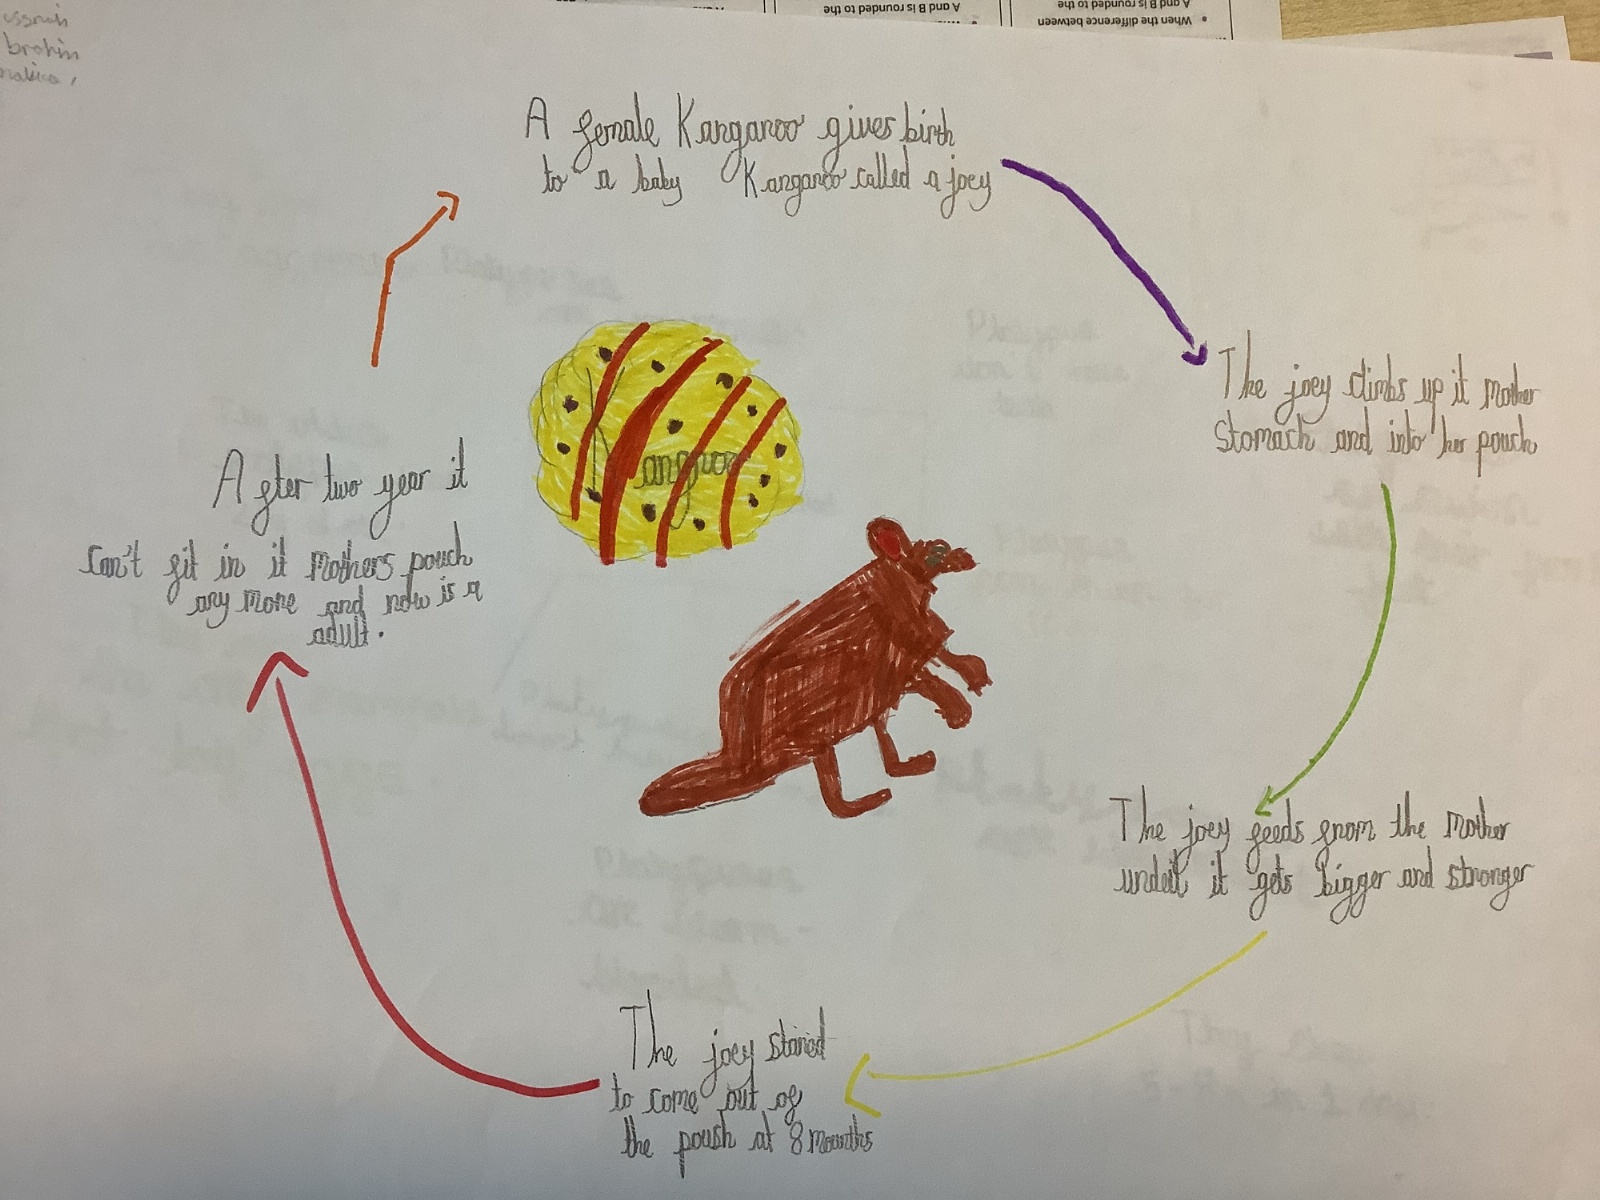 A female Kangaroo gives birth
to a baby Kangaroo called a joey
The joey climbs up it mother
stomach and into her pouch
The joey feeds from the mother
undeit it gets bigger and stronger
The joey stared
to come out of
the poush at 8 mounths
After two year it
can't fit in it mothers pouch
any more and now is a
adult.
Kangroo
A and B is rounded to the
A and B is rounded to the
• When the difference between